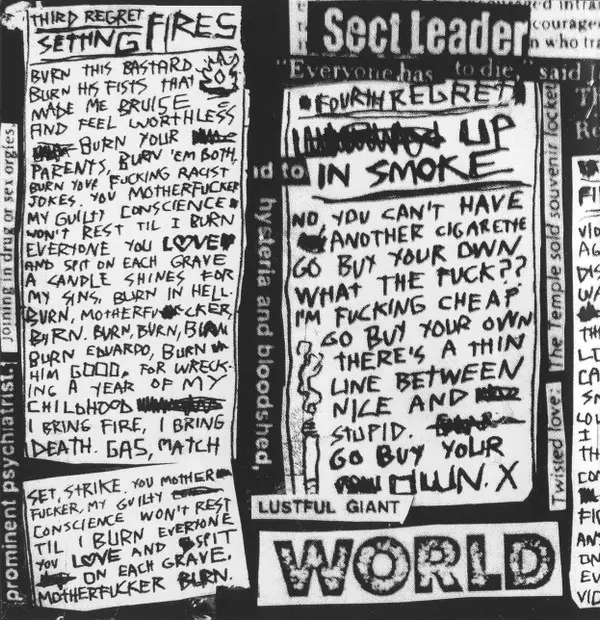 THIRD REGRET
SETTING FIRES
BURN THIS BASTARD.
BURN HIS FISTS THAT
MADE ME BRUISE
AND FEEL WORTHLESS
BURN YOUR
PARENTS, BURN 'EM BOTH.
BURN YOUR FUCKING RACIST
JOKES. YOU MOTHERFUCKER
MY GUILTY CONSCIENCE
WON'T REST TIL I BURN
EVERYONE YOU LOVE
AND SPIT ON EACH GRAVE
A CANDLE SHINES FOR
MY SINS, BURN IN HELL.
BURN, MOTHERFUCKER,
BURN. BURN, BURN, BURN
BURN EDUARDO, BURN
HIM GOOD, FOR WRECK-
ING A YEAR OF MY
CHILDHOOD
I BRING FIRE, I BRING
DEATH. GAS, MATCH
SET, STRIKE. YOU MOTHER
FUCKER, MY GUILTY
CONSCIENCE WON'T REST
TIL I BURN EVERYONE
YOU LOVE AND SPIT
ON EACH GRAVE.
MOTHERFUCKER BURN.
Joining in drug or sex orgies
prominent psychiatrist.
id to
hysteria and bloodshed,
Sect Leader
"Everyone has to die," said J
FOURTH REGRET
UP
IN SMOKE
NO YOU CAN'T HAVE
ANOTHER CIGARETTE
GO BUY YOUR OWN
WHAT THE FUCK??
I'M FUCKING CHEAP
GO BUY YOUR OWN
THERE'S A THIN
LINE BETWEEN
NICE AND
STUPID.
GO BUY YOUR
OWN. X
LUSTFUL GIANT
WORLD
The Temple sold souvenir locket
Twisted love:
courage
n who tra